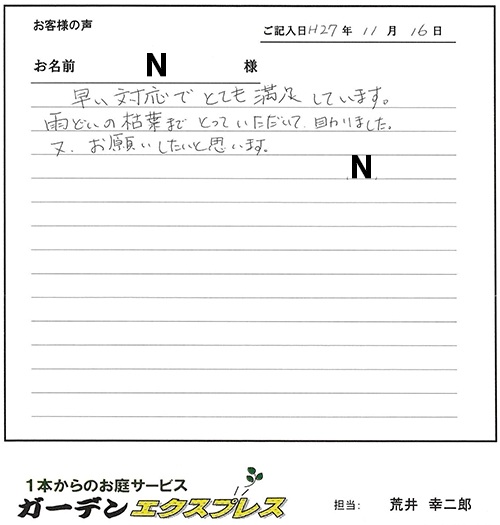 お客様の声
ご記入日H27年 11月 16日
お名前 N 様
早い対応でとても満足しています。
雨どいの枯葉までとっていただいて、助かりました。
又、お願いしたいと思います。
N
1本からのお庭サービス
ガーデンエクスプレス
担当: 荒井 幸二郎